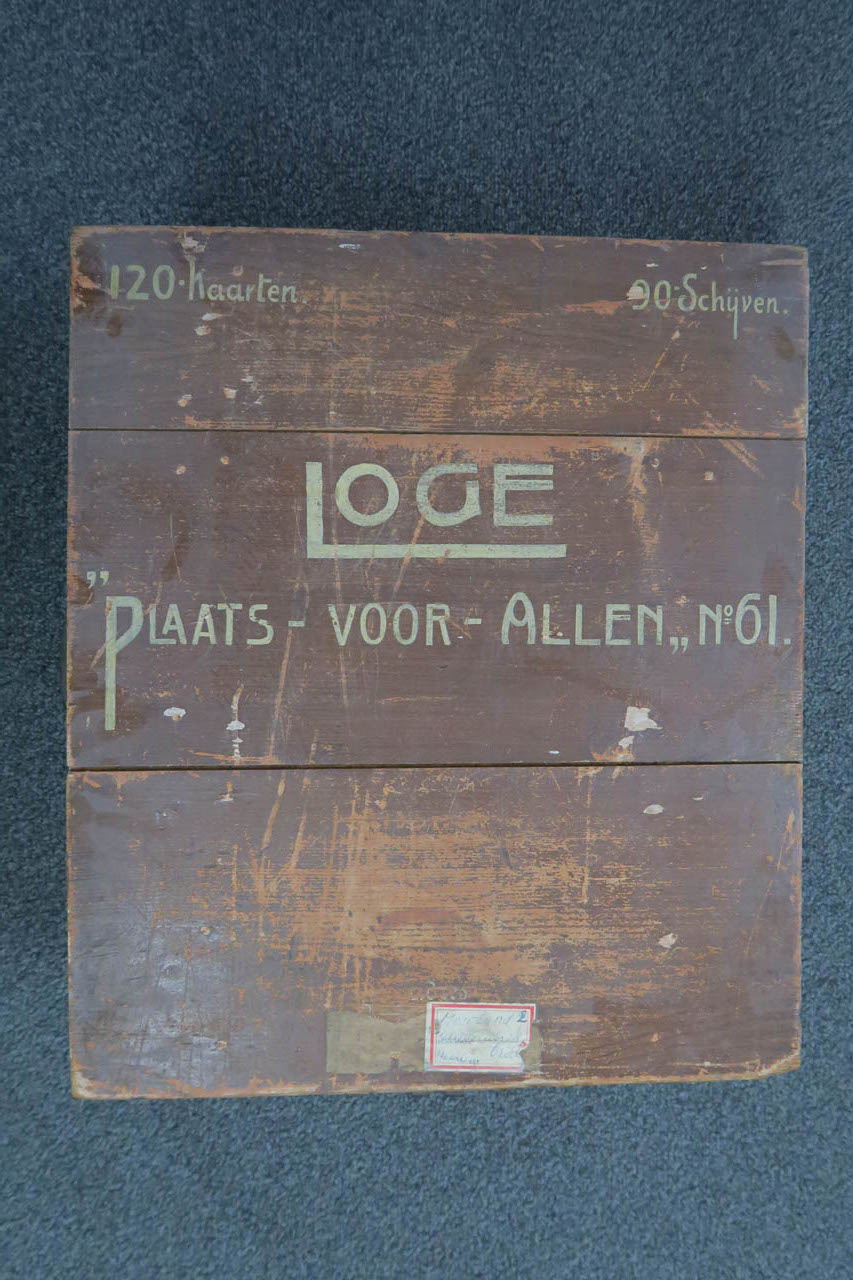 120·Kaarten.
90·Schijven.
LOGE
„PLAATS-VOOR-ALLEN„ No61.
2